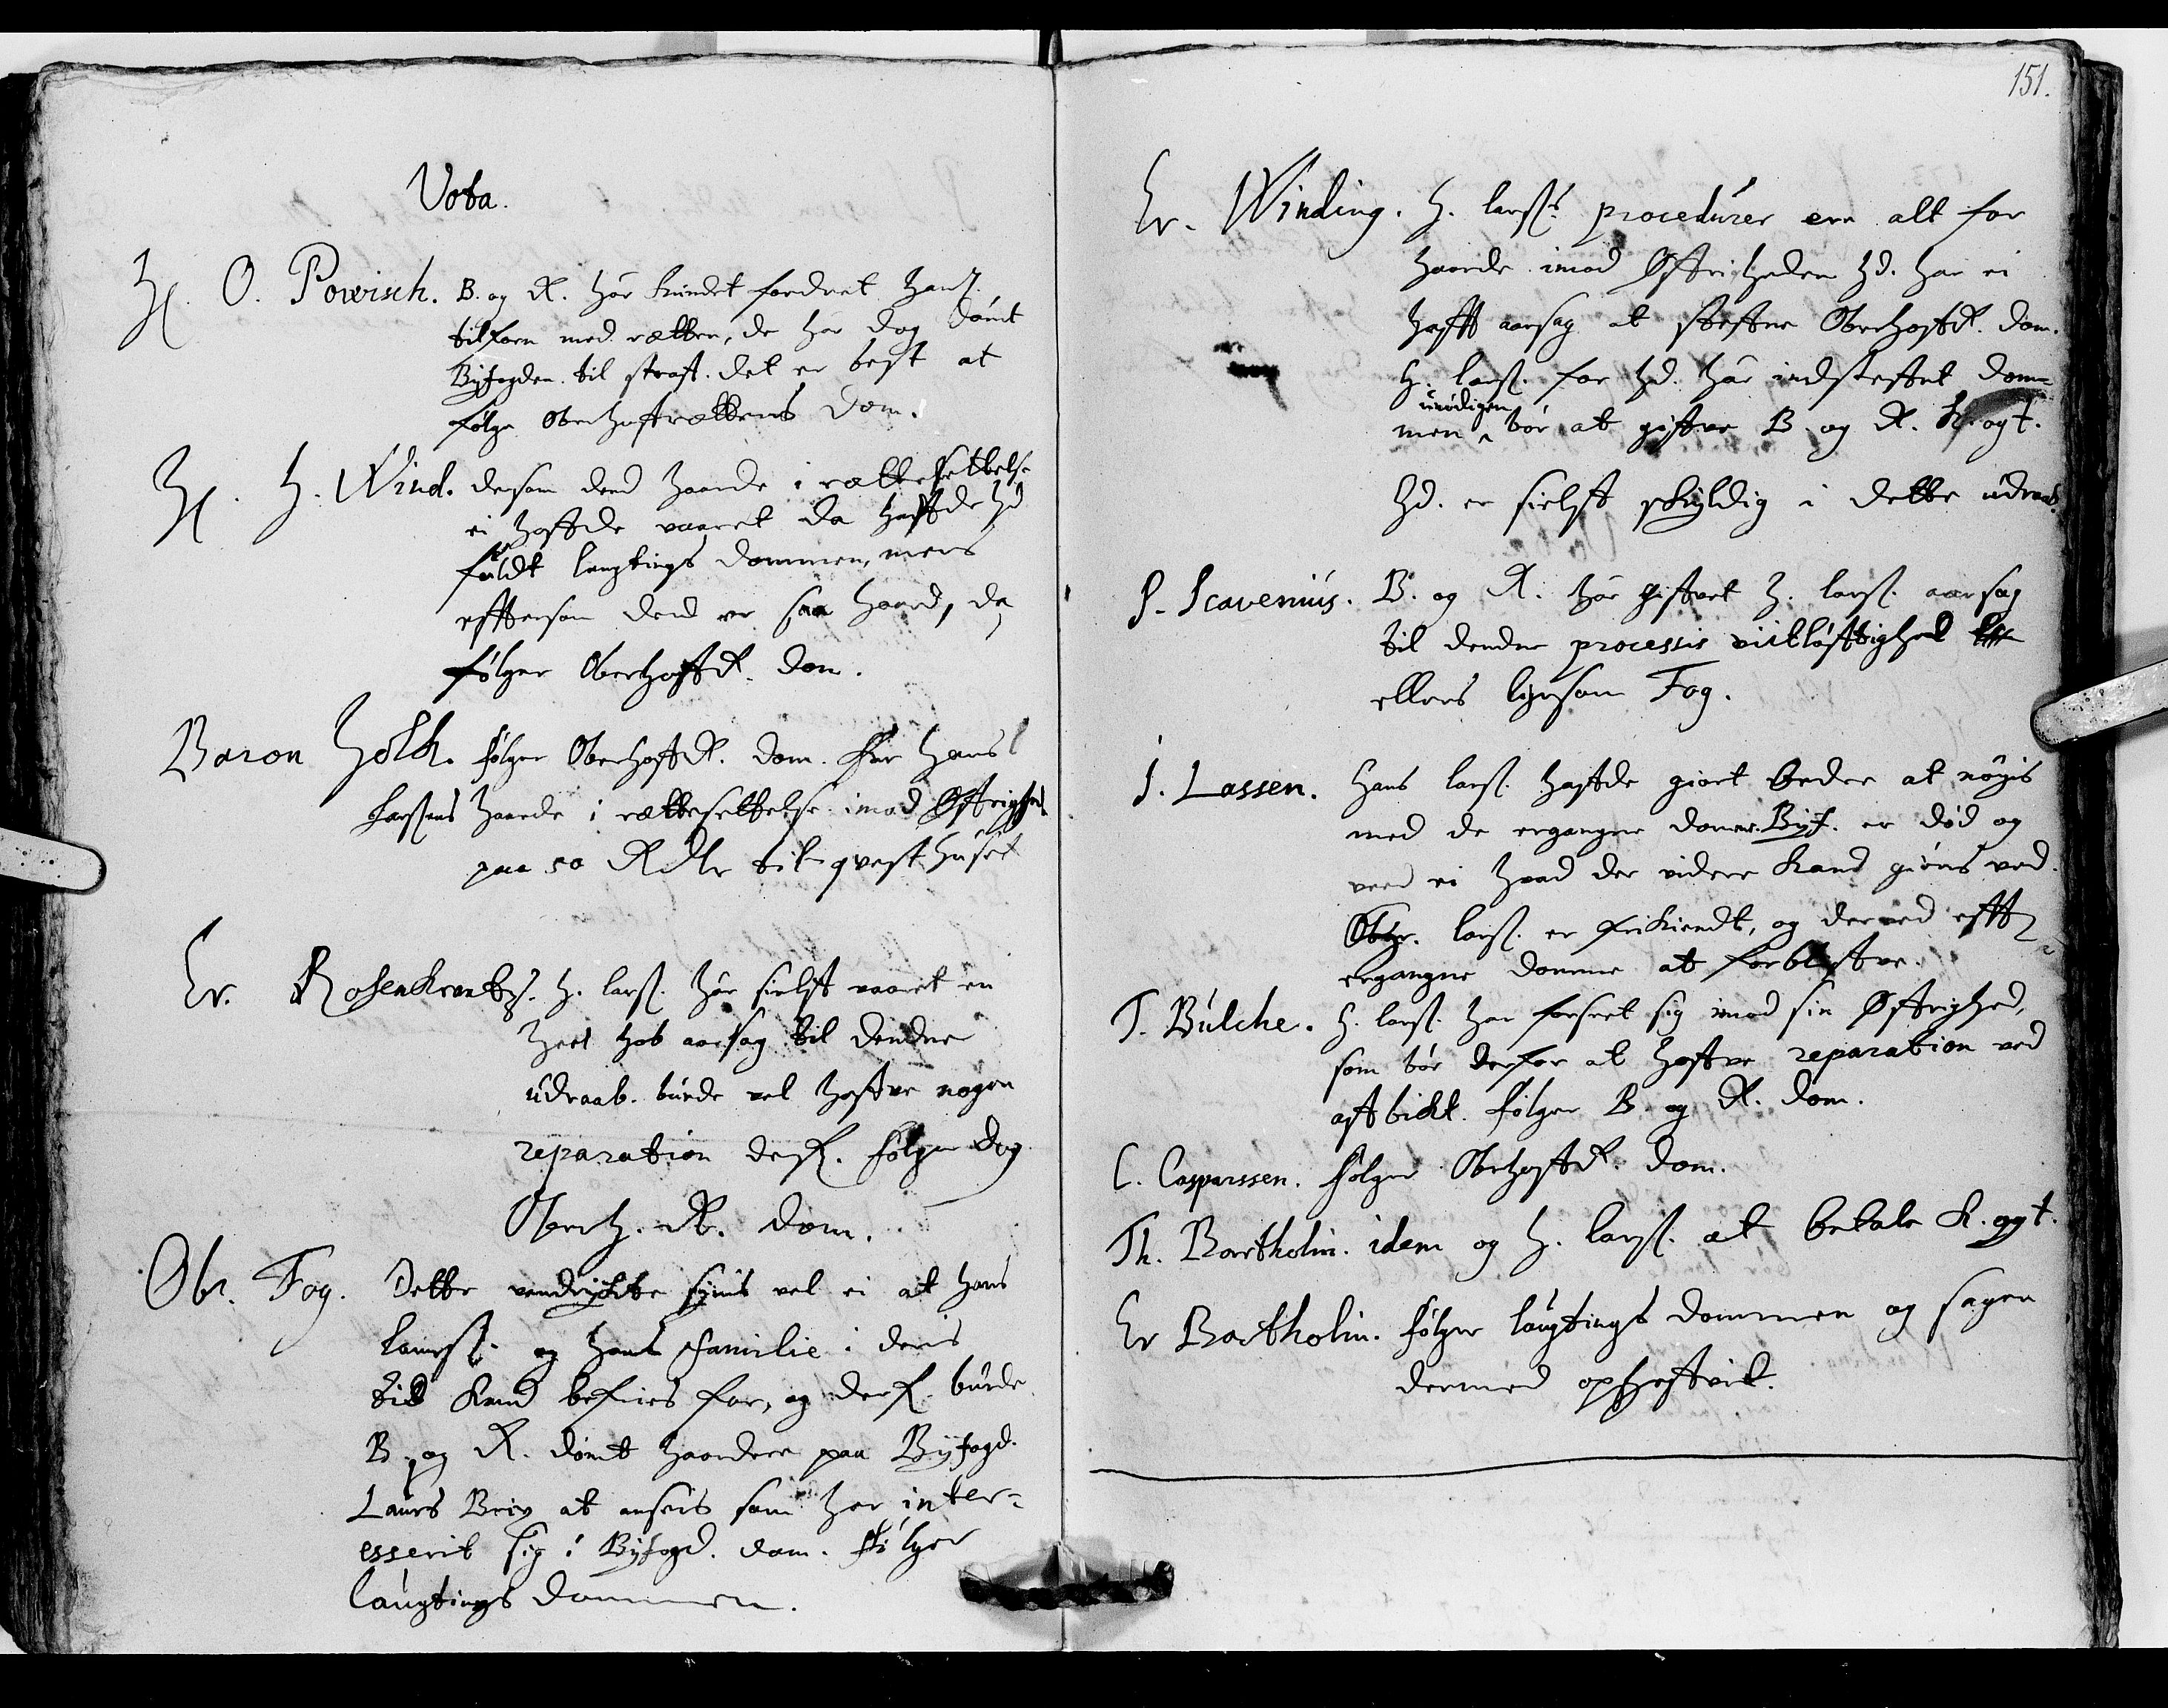 Vota.
H. O. Powisch. B. og R. har kundet fordret hans
tilforn med retten, de har dog dömt
Byfogden til straf. det er best at
følge Oberhofrettens dom.
H. H. Wind. dersom dend haarde i rettesettelse
ei hafde vaaret da hafde hd
fuldt laugtings dommen, mens
efftersom dend er saa haard, da
følger Oberhoff R. dom.
Baron Holck. følger Oberhoff R. dom. før hans
Larsens haarde i rettesettelse imod Øfrighed
paa 50 Rdlr til qvesthuset
Er. Rosenkrantz. H. Larss. har sielf vaaret en
heel hob aarsag til dendne
udraab. burde vel hafve nogen
reparation derf. følger dog
Oberh. R. dom.
Obr. Fog. Dette siuns vel ei at hans
Laurss. og hans familie i deris
tid kand befries for, og derf. burde
B. og R. dömt haardere paa Byfogd.
Laurs Brix at ansees som har inter-
esserit sig i Byfogd. dom. følger
laugtings dommen.
151.
Er. Winding. H. Larss procedurer ere alt for
haarde imod Øfrigheden hd. har ei
hafft aarsag at stefne Oberhoff R. dom.
H. Larss. for hd. har indstefnet dom-
unødigen
men bør at gifve B. og R. K. og t.
hd. er sielf skyldig i dette udraab.
P. Scavenius. B. og R. har gifvet H. Larss. aarsag
til dendne processis vitløfftighed
ellers ligesom Fog.
J. Lassen. Hans Larss. hafde giort bedre at nøyis
med de ergangne domme. Byf. er død og
veed ei hvad der videre kand giøris ved.
Larss. er frikiendt, og derved efft
ergangne domme at forblifve.
T. Bulche. H. Larss. har forseet sig imod sin Øfrighed,
som bør derfor at hafve reparation ved
afbidt. følger B. og R. dom.
C. Casparssen. følger Oberhoff R. dom.
Th. Bartholin. idem og H. Larss. at betale K. og t.
Er Bartholin. følger laugtings dommen og sagen
dermed ophefvit.